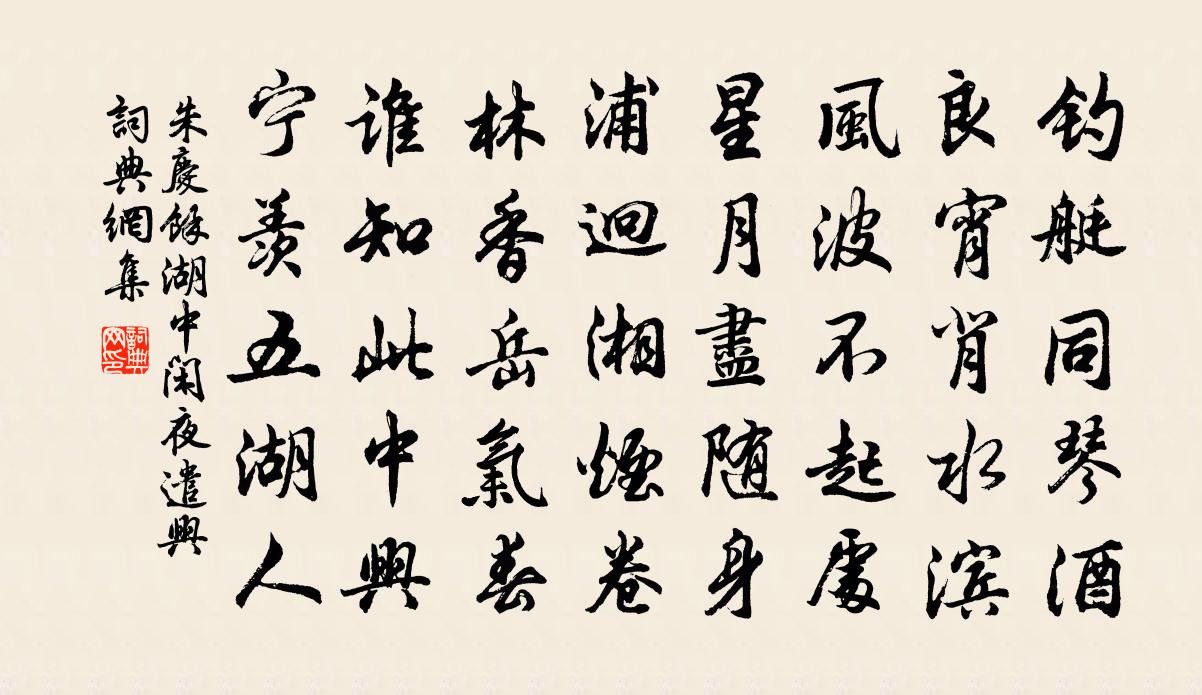 钓艇同琴酒
良宵背水滨
風波不起處
星月盡随身
浦迥湘煙卷
林香岳氣春
誰知此中興
宁羡五湖人
朱慶餘湖中閑夜遣興
詞典網集
詞典网印